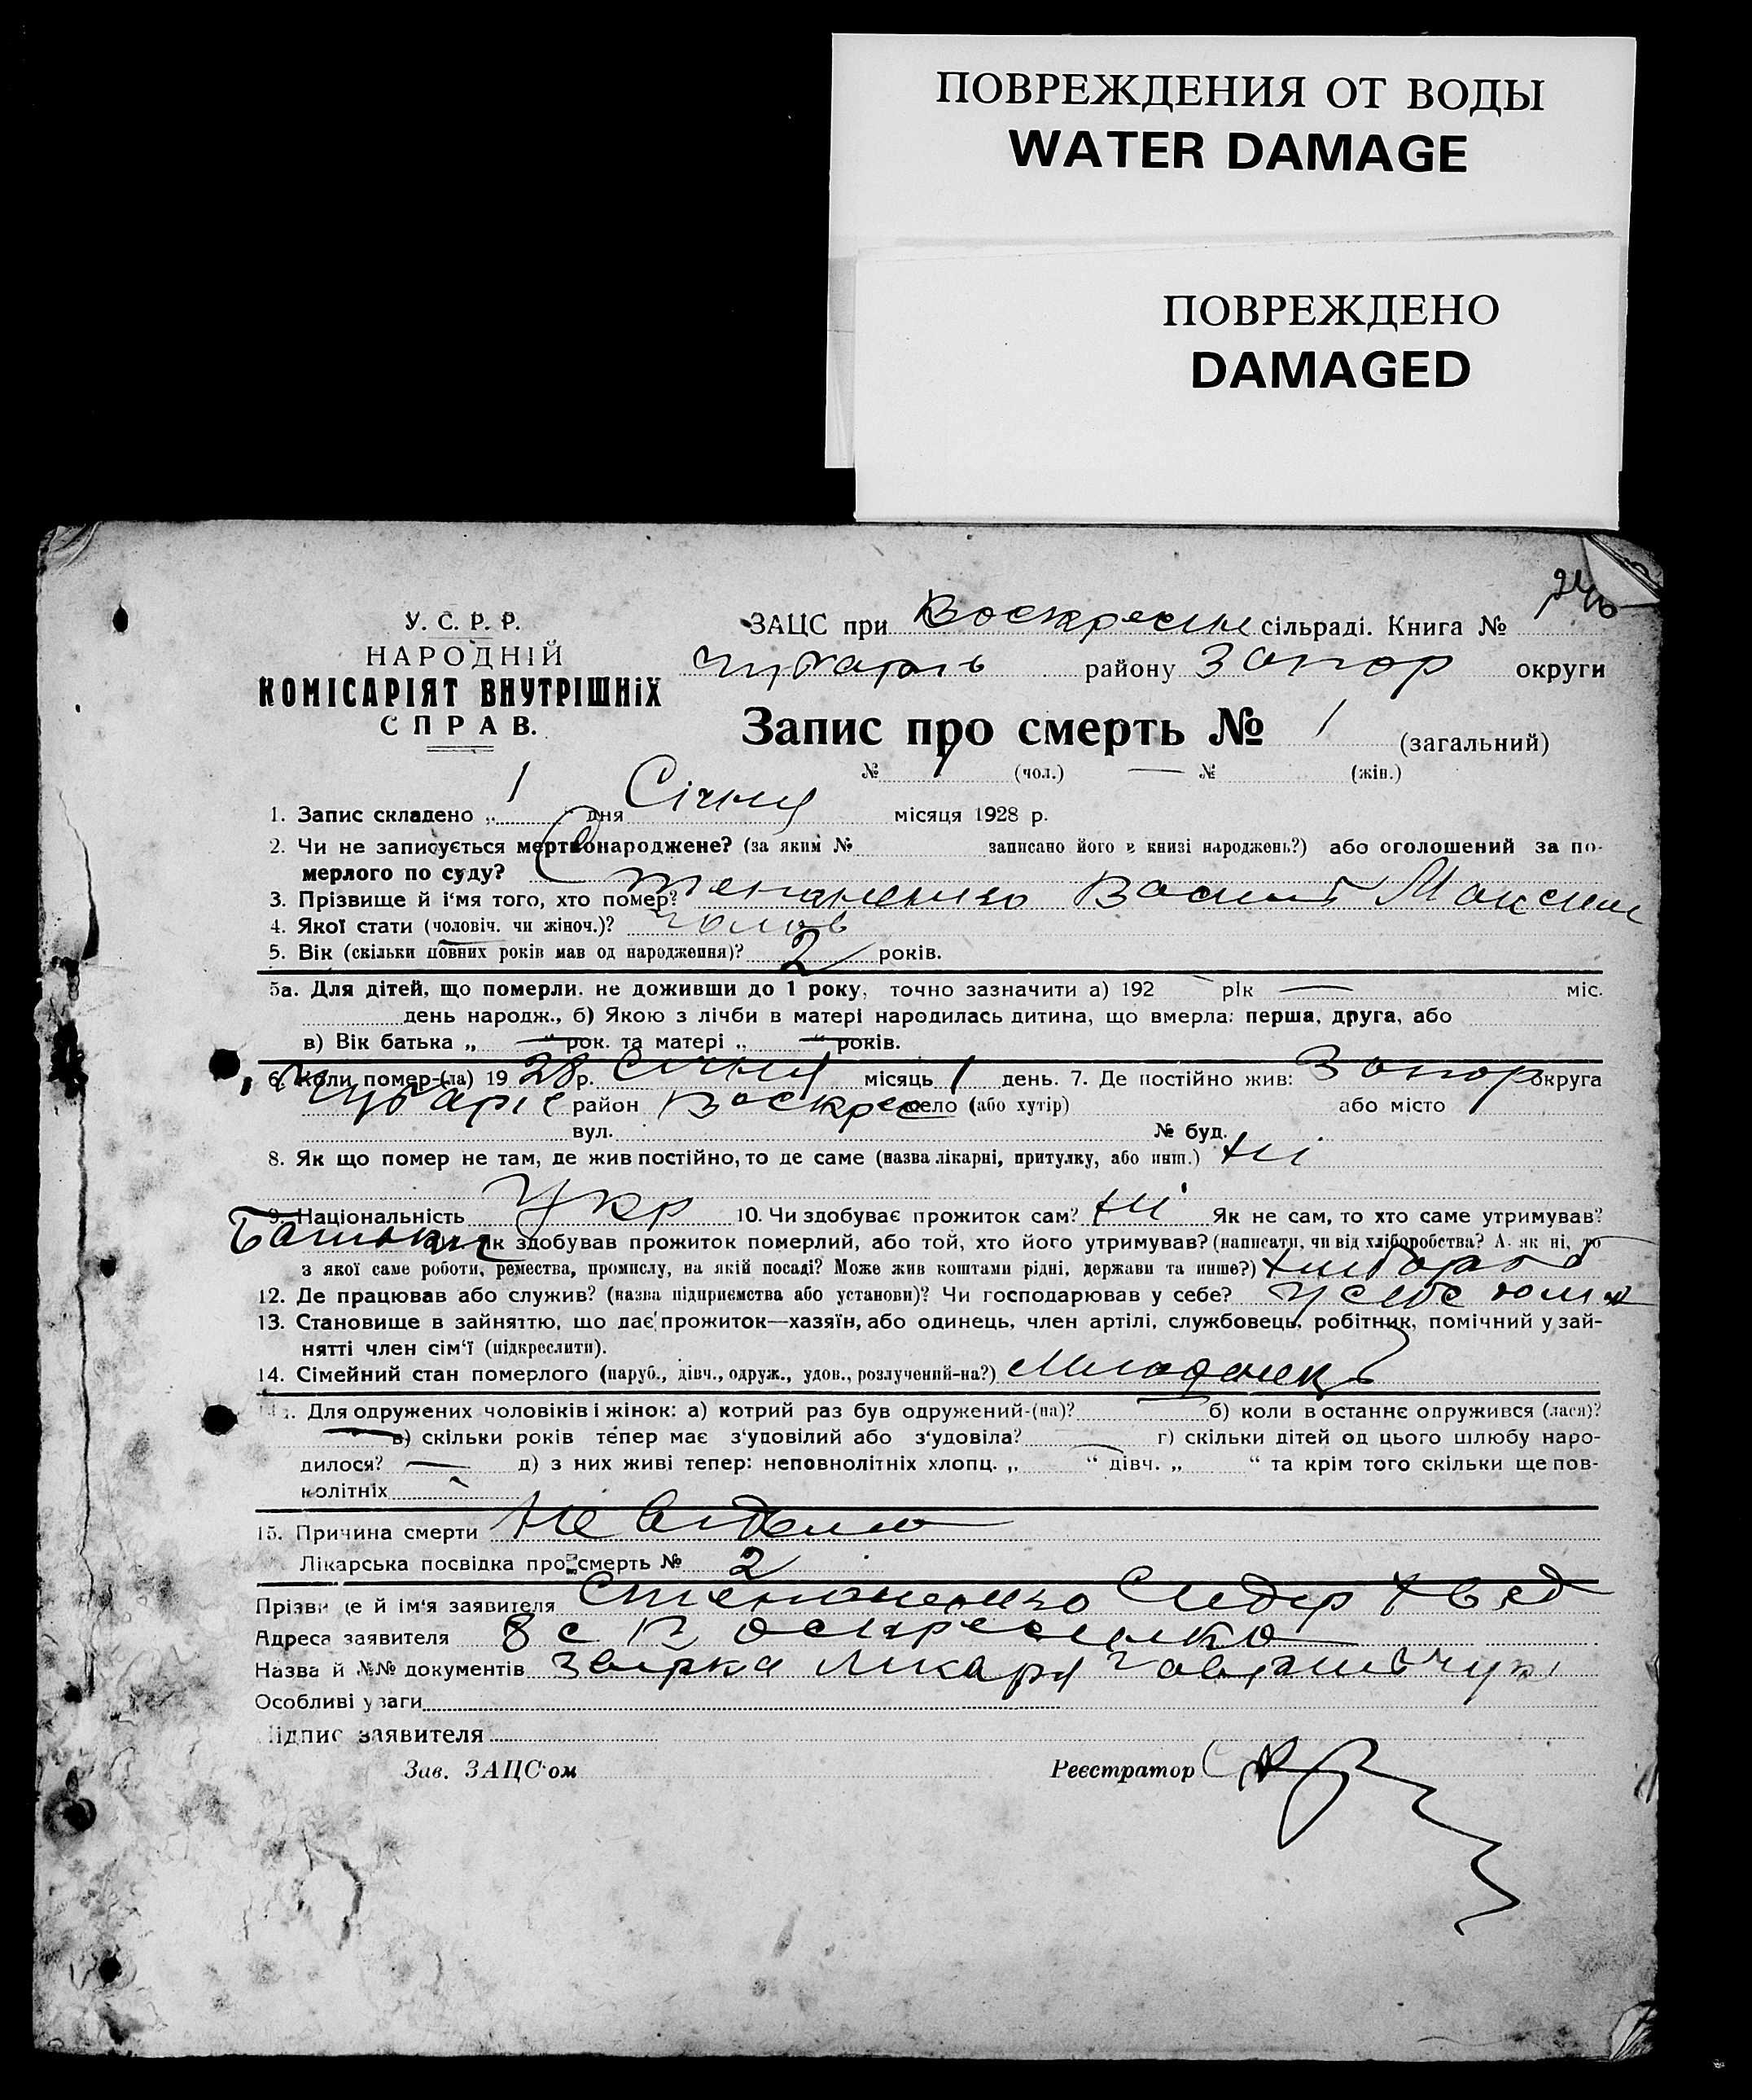 ПОВРЕЖДЕНИЯ ОТ ВОДЫ
WATER DAMAGE
ПОВРЕЖДЕНО
DAMAGED
У. С. Р. Р.
НАРОДНІЙ
КОМІСАРІЯТ ВНУТРІШНіХ
СПРАВ.
ЗАЦС при Воскресен сільраді. Книга №
Чубарів району Запор округи
Запис про смерть № 1 (загальний)
№ 1 (чол.) — № (жін.)
1. Запис складено „ 1 " дня Січня місяця 1928 р.
2. Чи не записується мертвонароджене? (за яким № записано його в книзі народжень?) або оголошений за по-
мерлого по суду?
3. Прізвище й і'мя того, хто помер? Степаненко Василь Максим
4. Якої стати (чоловіч. чи жіноч.)? чолов
5. Вік (скільки повних років мав од народження)? 2 років.
5а. Для дітей, що померли. не доживши до 1 року, точно зазначити а) 192 рік — міс.
день народж., б) Якою з лічби в матері народилась дитина, що вмерла: перша, друга, або
в) Вік батька „ — " рок. та матері „ — " років.
6. Коли помер-(ла) 19 28 р. Січня місяць 1 день. 7. Де постійно жив: Запор округа
Чубарів район Воскресе село (або хутір) або місто
вул. № буд.
8. Як що помер не там, де жив постійно, то де саме (назва лікарні, притулку, або инш.) ні
9. Національність Укр 10. Чи здобуває прожиток сам? ні Як не сам, то хто саме утримував?
Батьки як здобував прожиток померлий, або той, хто його утримував? (написати, чи від хліборобства? А як ні, то
з якої саме роботи, ремества, промислу, на якій посаді? Може жив коштами рідні, держави та инше?) хлібороб
12. Де працював або служив? (назва підприємства або установи)? Чи господарював у себе? У себе
13. Становище в зайняттю, що дає прожиток—хазяїн, або одинець, член артілі, службовець, робітник, помічний у зай-
нятті член сім'ї (підкреслити).
14. Сімейний стан померлого (паруб., дівч., одруж., удов., розлучений-на?) Младенець
Для одружених чоловіків і жінок: а) котрий раз був одружений-(на)? б) коли востаннє одружився (лася)?
в) скільки років тепер має з'удовілий або з'удовіла? г) скільки дітей од цього шлюбу наро-
дилося? — д) з них живі тепер: неповнолітніх хлопц. „ " дівч. „ " та крім того скільки ще пов-
нолітніх
15. Причина смерти
Лікарська посвідка про смерть № 2
Прізвище й ім'я заявителя Степаненко Сидір
Адреса заявителя с Воскресенка
Назва й №№ документів лікаря
Особливі уваги
Підпис заявителя
Зав. ЗАЦС'ом Реєстратор